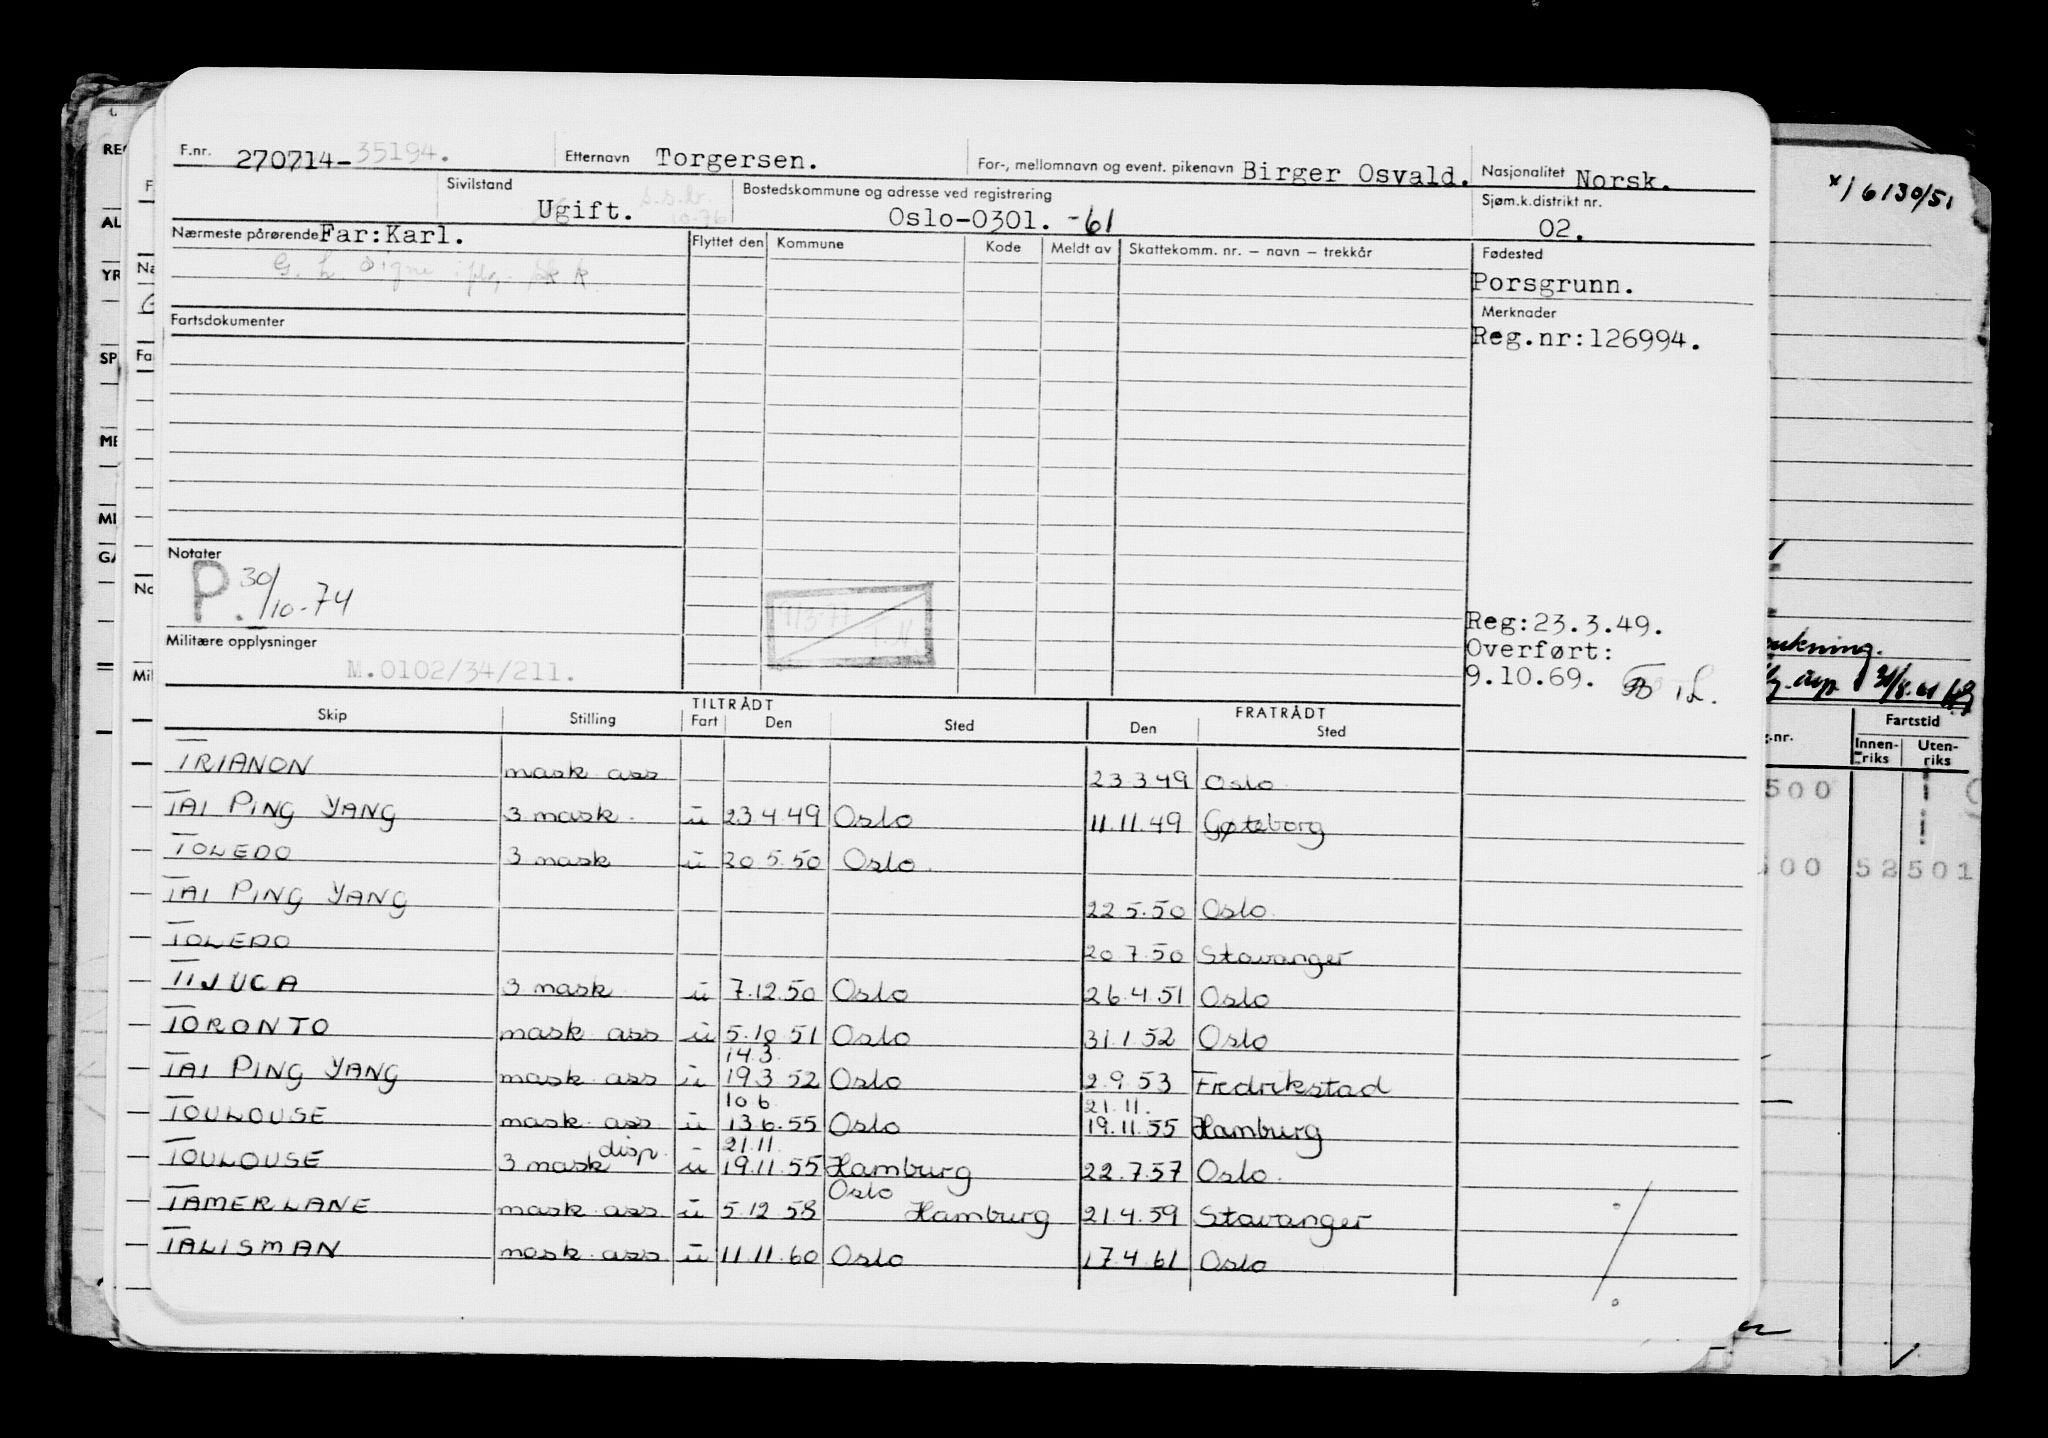 F.nr. 270714-35194. Etternavn Torgersen. For-, mellomnavn og event. pikenavn Birger Osvald. Nasjonalitet Norsk.
Sivilstand Ugift. Bostedskommune og adresse ved registrering Oslo-0301. -61 Sjøm.k.distrikt nr. 02.
10-76
Nærmeste pårørende Far:Karl. Flyttet den Kommune Kode Meldt av Skattekomm. nr. – navn – trekkår Fødested
Porsgrunn.
G. L. Signe
Fartsdokumenter Merknader
Reg.nr:126994.
Notater
P. 30/10-74
Militære opplysninger
M.0102/34/211.
Reg:23.3.49.
Overført:
9.10.69.
TILTRÅDT FRATRÅDT
Skip Stilling Fart Den Sted Den Sted
TRIANON mask ass 23 3 49 Oslo
TAI PING YANG 3 mask. u 23 4 49 Oslo 11.11.49 Gøteborg
TOLEDO 3 mask u 20 5.50 Oslo.
TAI PING YANG 22 5.50 Oslo.
TOLEDO 20 7.50 Stavanger
TIJUCA 3 mask u 7.12.50 Oslo 26.4.51 Oslo
TORONTO mask ass u 5.10 51 Oslo 31.1.52 Oslo
14.3.
TAI PING YANG mask ass u 19.3 52 Oslo 2.9.53 Fredrikstad
10 6. 21.11.
TOULOUSE mask ass u 13.6.55 Oslo 19.11.55 Hamburg
disp. 21.11.
TOULOUSE 3 mask u 19.11.55 Hamburg 22.7.57 Oslo.
Oslo
TAMERLANE mask ass u 5.12 58 Hamburg 21.4.59 Stavanger
TALISMAN mask ass u 11.11.60 Oslo 17.4.61 Oslo
x/ 6130/51
Fartstid
g.nr. Innenriks Utenriks
500
500 52 501